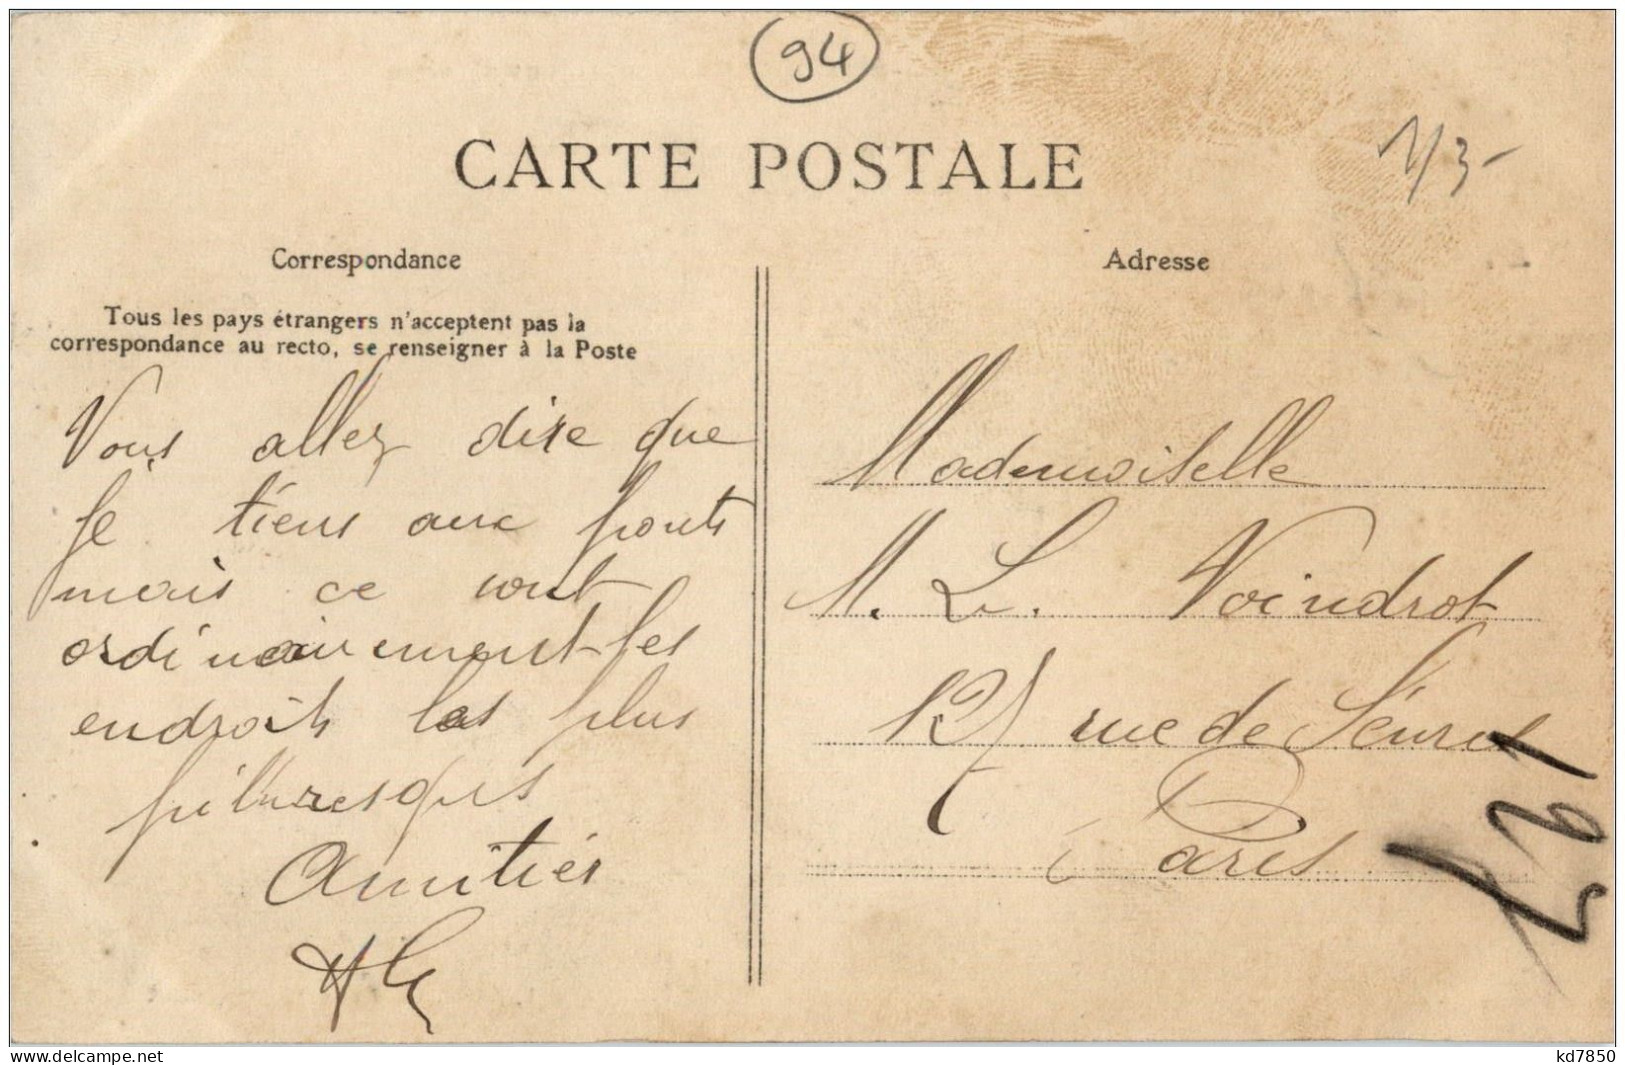 94
1/3-
CARTE POSTALE
Correspondance
Tous les pays étrangers n'acceptent pas la
correspondance au recto, se renseigner à la Poste
Vous allez dire que
je tiens aux ponts
mais ce sont
ordinairement les
endroits les plus
pittoresques
Amitiés
Adresse
Mademoiselle
M. L. Voindrot
127 rue de Sèvres
Paris
www.delcampe.net
kd7850